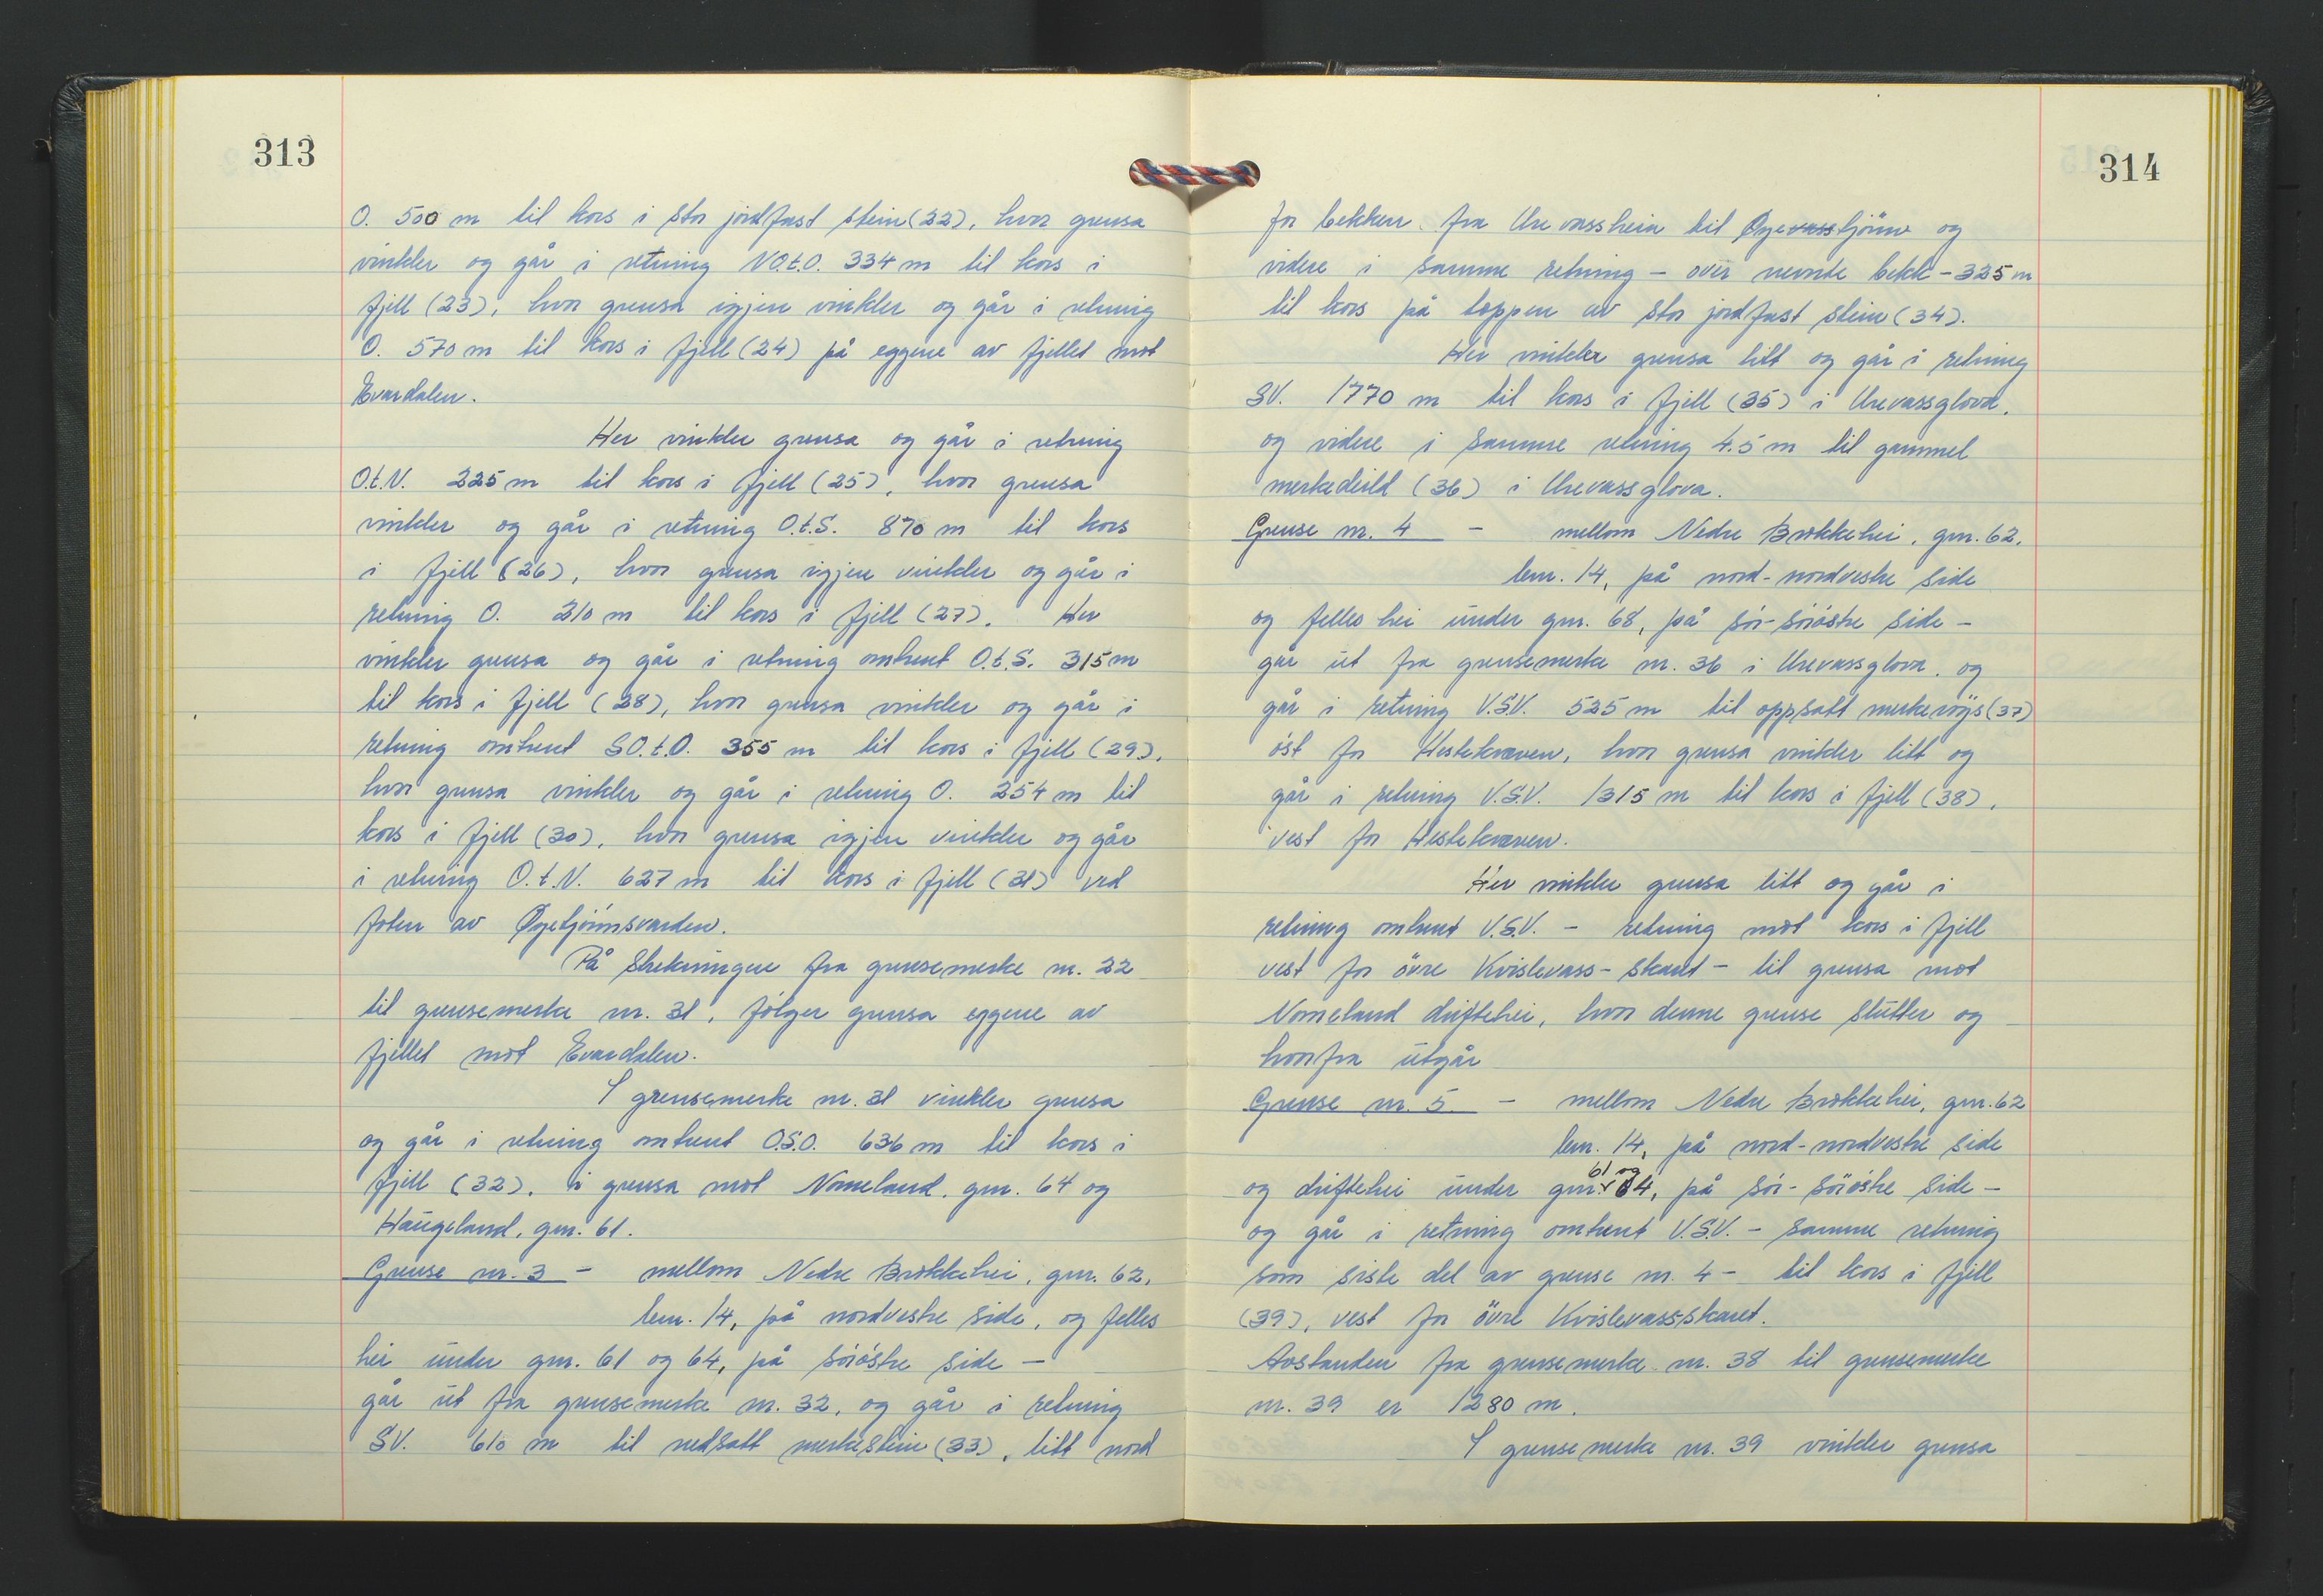 313
O. 500 m til kors i stor jordfast stein (22), hvor grensa
vinkler og går i retning NO.t.O. 334 m til kors i
fjell (23), hvor grensa igjen vinkler og går i retning
O. 570 m til kors i fjell (24) på eggene av fjellet mot
Evardalen.
Her vinkler grensa og går i retning
O.t.N. 225 m til kors i fjell (25), hvor grensa
vinkler og går i retning O.t.S. 870 m til kors
i fjell (26), hvor grensa igjen vinkler og går i
retning O. 210 m til kors i fjell (27). Her
vinkler grensa og går i retning omtrent O.t.S. 315 m
til kors i fjell (28), hvor grensa vinkler og går i
retning omtrent SO.t.O. 355 m til kors i fjell (29),
hvor grensa vinkler og går i retning O. 254 m til
kors i fjell (30), hvor grensa igjen vinkler og går
i retning O.t.N. 627 m til kors i fjell (31) ved
foten av Øyetjönnsvarden.
På strekningen fra grensemerke nr. 22
til grensemerke nr. 31, fölger grensa eggene av
fjellet mot Evardalen.
I grensemerke nr. 31 vinkler grensa
og går i retning omtrent O.S.O. 636 m til kors i
fjell (32), i grensa mot Nomeland, gnr. 64 og
Haugeland, gnr. 61.
Grense nr. 3 - mellom Nedre Brokkehei, gnr. 62,
bnr. 14, på nordvestre side, og felles
hei under gnr. 61 og 64, på söröstre side -
går ut fra grensemerke nr. 32, og går i retning
SV. 610 m til nedsatt merkestein (33), litt nord
314
for bekken fra Urevassheia til Øyevasstjönn og
videre i samme retning - over nevnte bekk - 325 m
til kors på toppen av stor jordfast stein (34).
Her vinkler grensa litt og går i retning
SV. 1770 m til kors i fjell (35) i Urevassglova,
og videre i samme retning 4.5 m til gammel
merkedeild (36) i Urevassglova.
Grense nr. 4 - mellom Nedre Brokkehei, gnr. 62,
bnr. 14, på nord-nordvestre side
og felles hei under gnr. 68, på sör-söröstre side -
går ut fra grensemerke nr. 36 i Urevassglova, og
går i retning V.S.V. 525 m til oppsatt merkeröys (37)
öst for Hestekvæven, hvor grensa vinkler litt og
går i retning V.S.V. 1315 m til kors i fjell (38),
vest for Hestekvæven.
Her vinkler grensa litt og går i
retning omtrent V.S.V. - retning mot kors i fjell
vest for övre Kvislevass-skaret - til grensa mot
Nomeland driftehei, hvor denne grense slutter og
hvorfra utgår
Grense nr. 5. - mellom Nedre Brokkehei, gnr. 62
bnr. 14, på nord-nordvestre side
og driftehei under gnr. 61 og 64, på sör-söröstre side -
og går i retning omtrent V.S.V. - samme retning
som siste del av grense nr. 4 - til kors i fjell
(39), vest for övre Kvislevass-skaret.
Avstanden fra grensemerke nr. 38 til grensemerke
nr. 39 er 1280 m.
I grensemerke nr. 39 vinkler grensa